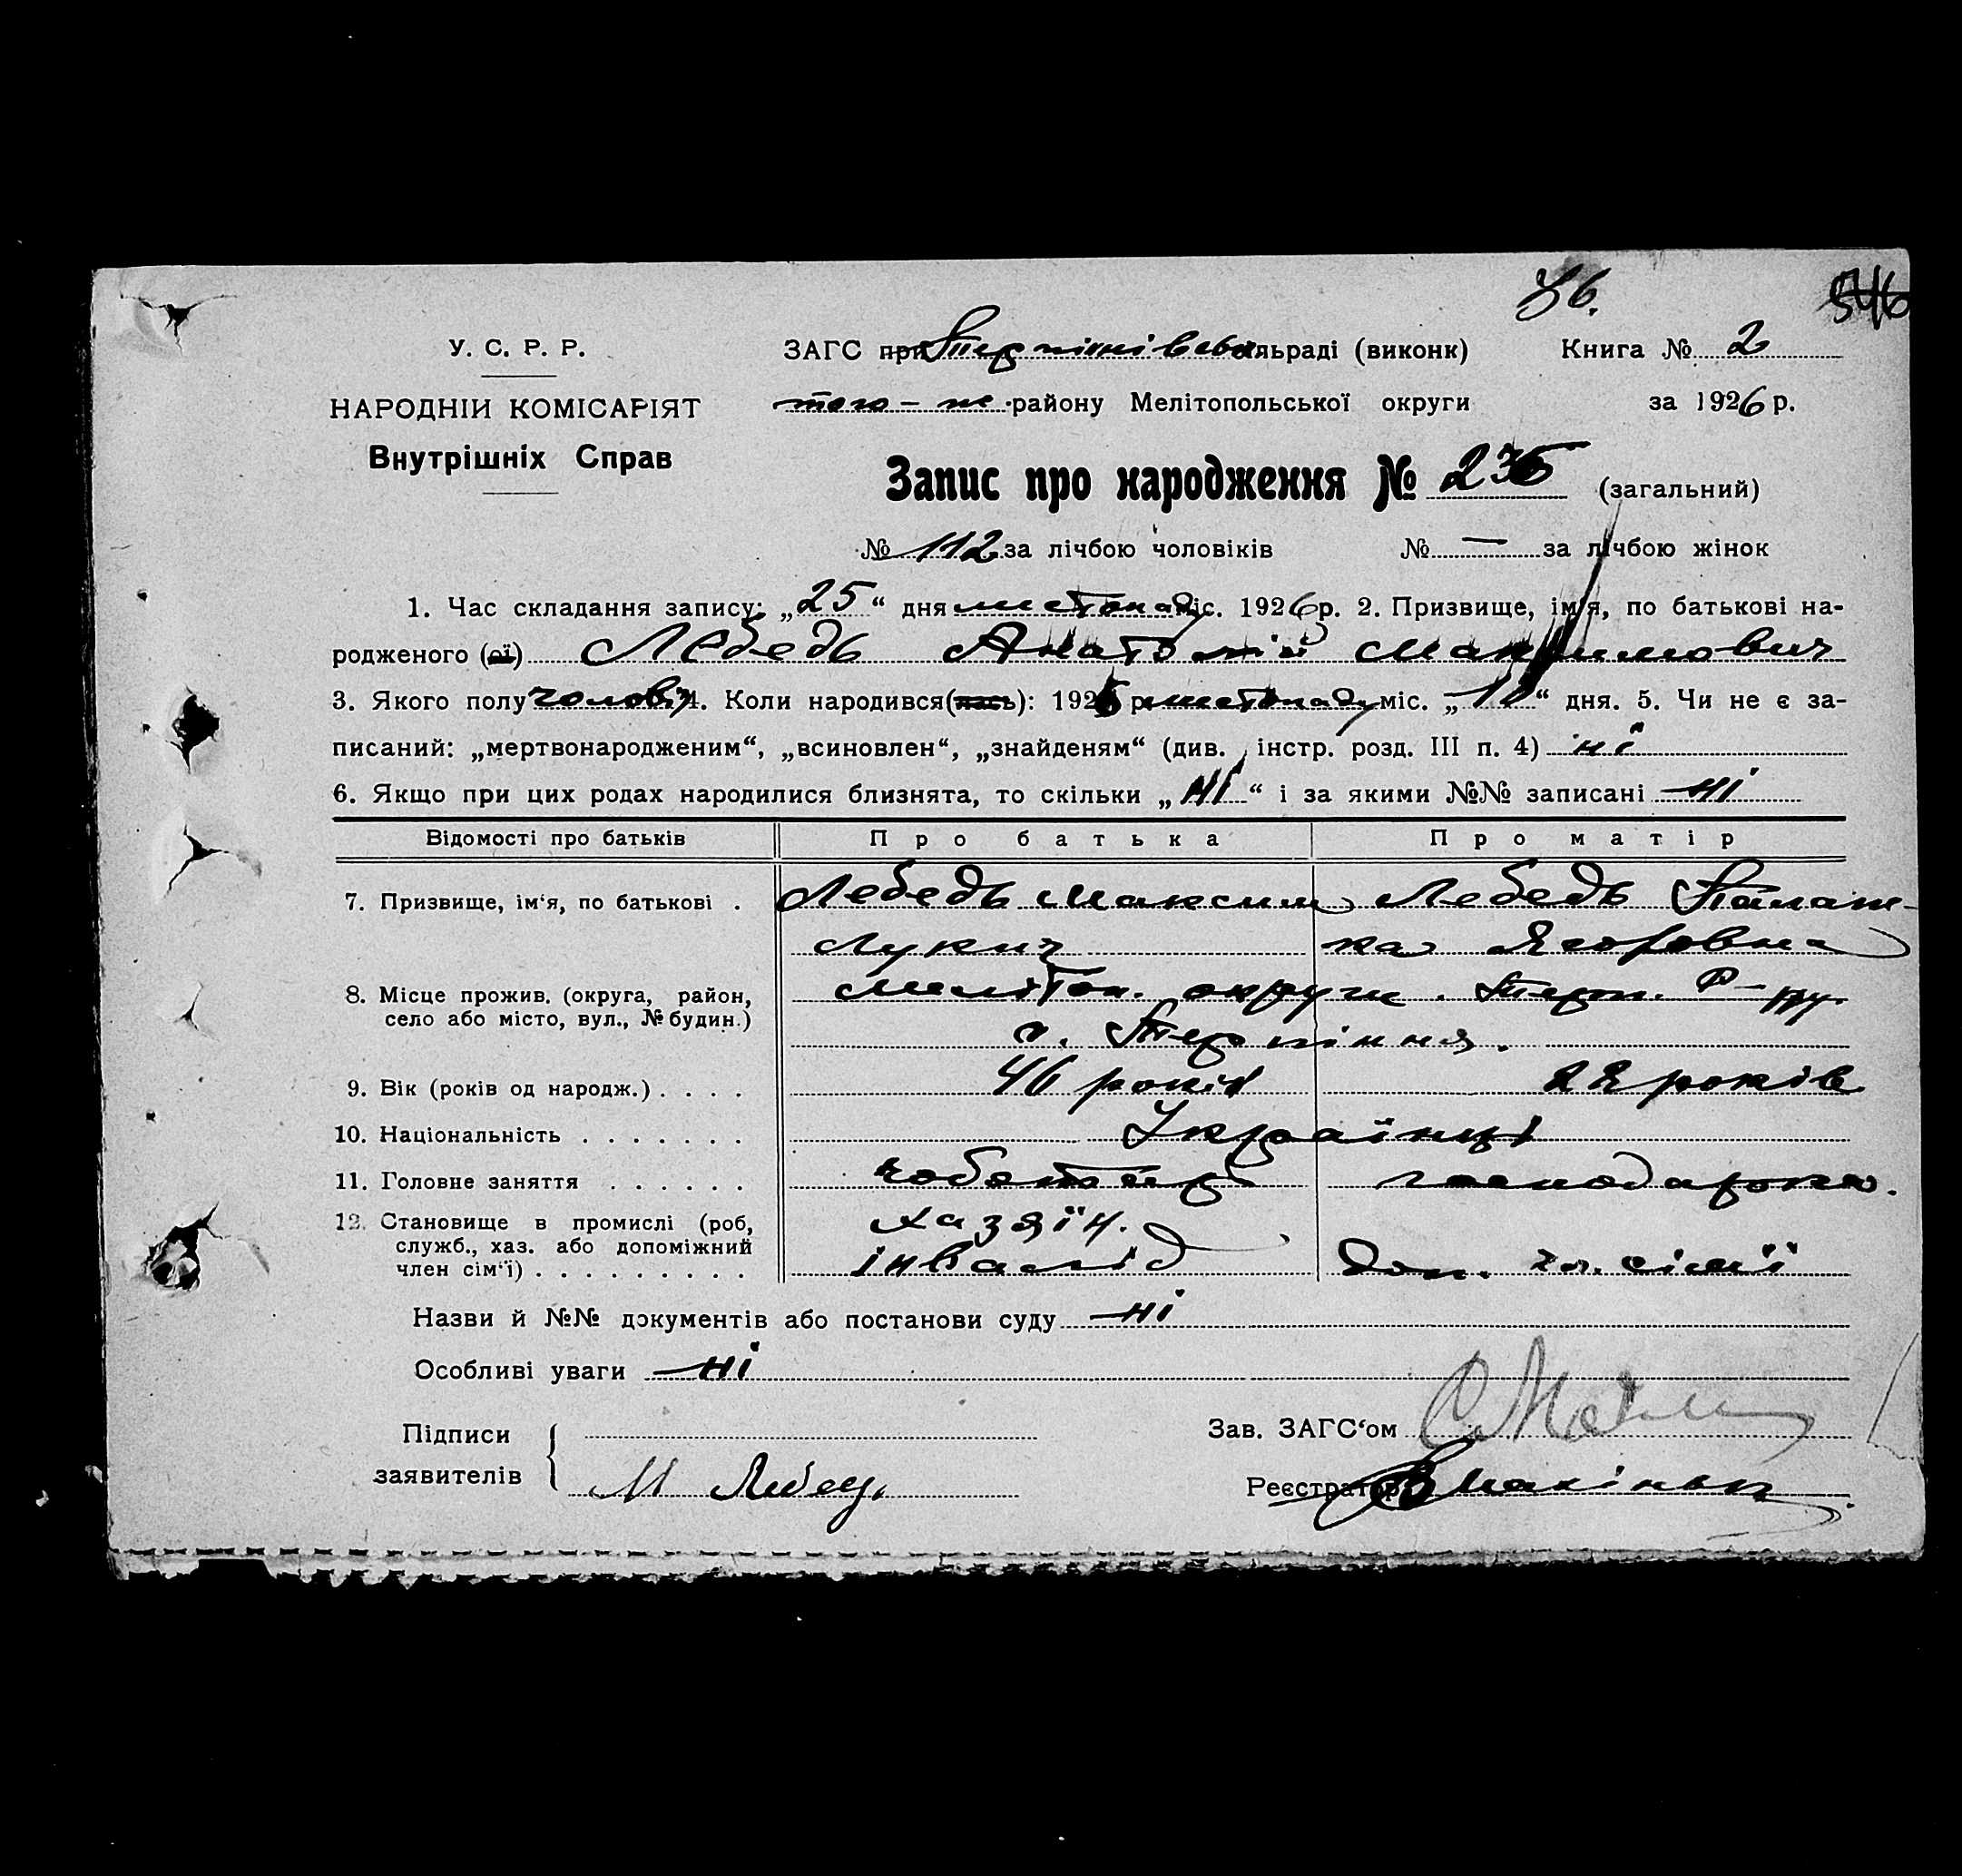 У. С. Р. Р.
НАРОДНІЙ КОМІСАРІЯТ
Внутрішніх Справ
36. 546
ЗАГС при Терпіннівськ сільраді (виконк) Книга № 2
того-же району Мелітопольської округи за 1926 р.
Запис про народження № 235 (загальний)
№ 112 за лічбою чоловіків № — за лічбою жінок
1. Час складання запису: „25“ дня листопад міс. 1926 р. 2. Призвище, ім'я, по батькові на-
родженого (ої) Лебедь Анатолій Максимович
3. Якого полу чолов. 4. Коли народився(лась): 1926 р. листопаду міс. „11“ дня. 5. Чи не є за-
писаний: „мертвонародженим“, „всиновлен“, „знайденям“ (див. інстр. розд. III п. 4) ні
6. Якщо при цих родах народилися близнята, то скільки „ні“ і за якими №№ записані ні
Відомості про батьків Про батька Про матір
7. Призвище, ім‘я, по батькові . Лебедь Максим Лебедь Палаж-
Лукич ка Ягоровна
8. Місце прожив. (округа, район, Мелітоп. округи. Терп. Р-ну.
село або місто, вул., № будин.) с. Терпіння.
9. Вік (років од народж.) . . . . 46 років 22 років
10. Національність . . . . . . . Українці
11. Головне заняття . . . . . . чоботарь господаркою.
12. Становище в промислі (роб, хазяїн.
служб., хаз. або допоміжний
член сім‘ї) . . . . . . . . . інвалід доп. чл. сімї
Назви й №№ документів або постанови суду ні
Особливі уваги ні
Підписи
Зав. ЗАГС‘ом
заявителів М Лебедь
Реєстратор